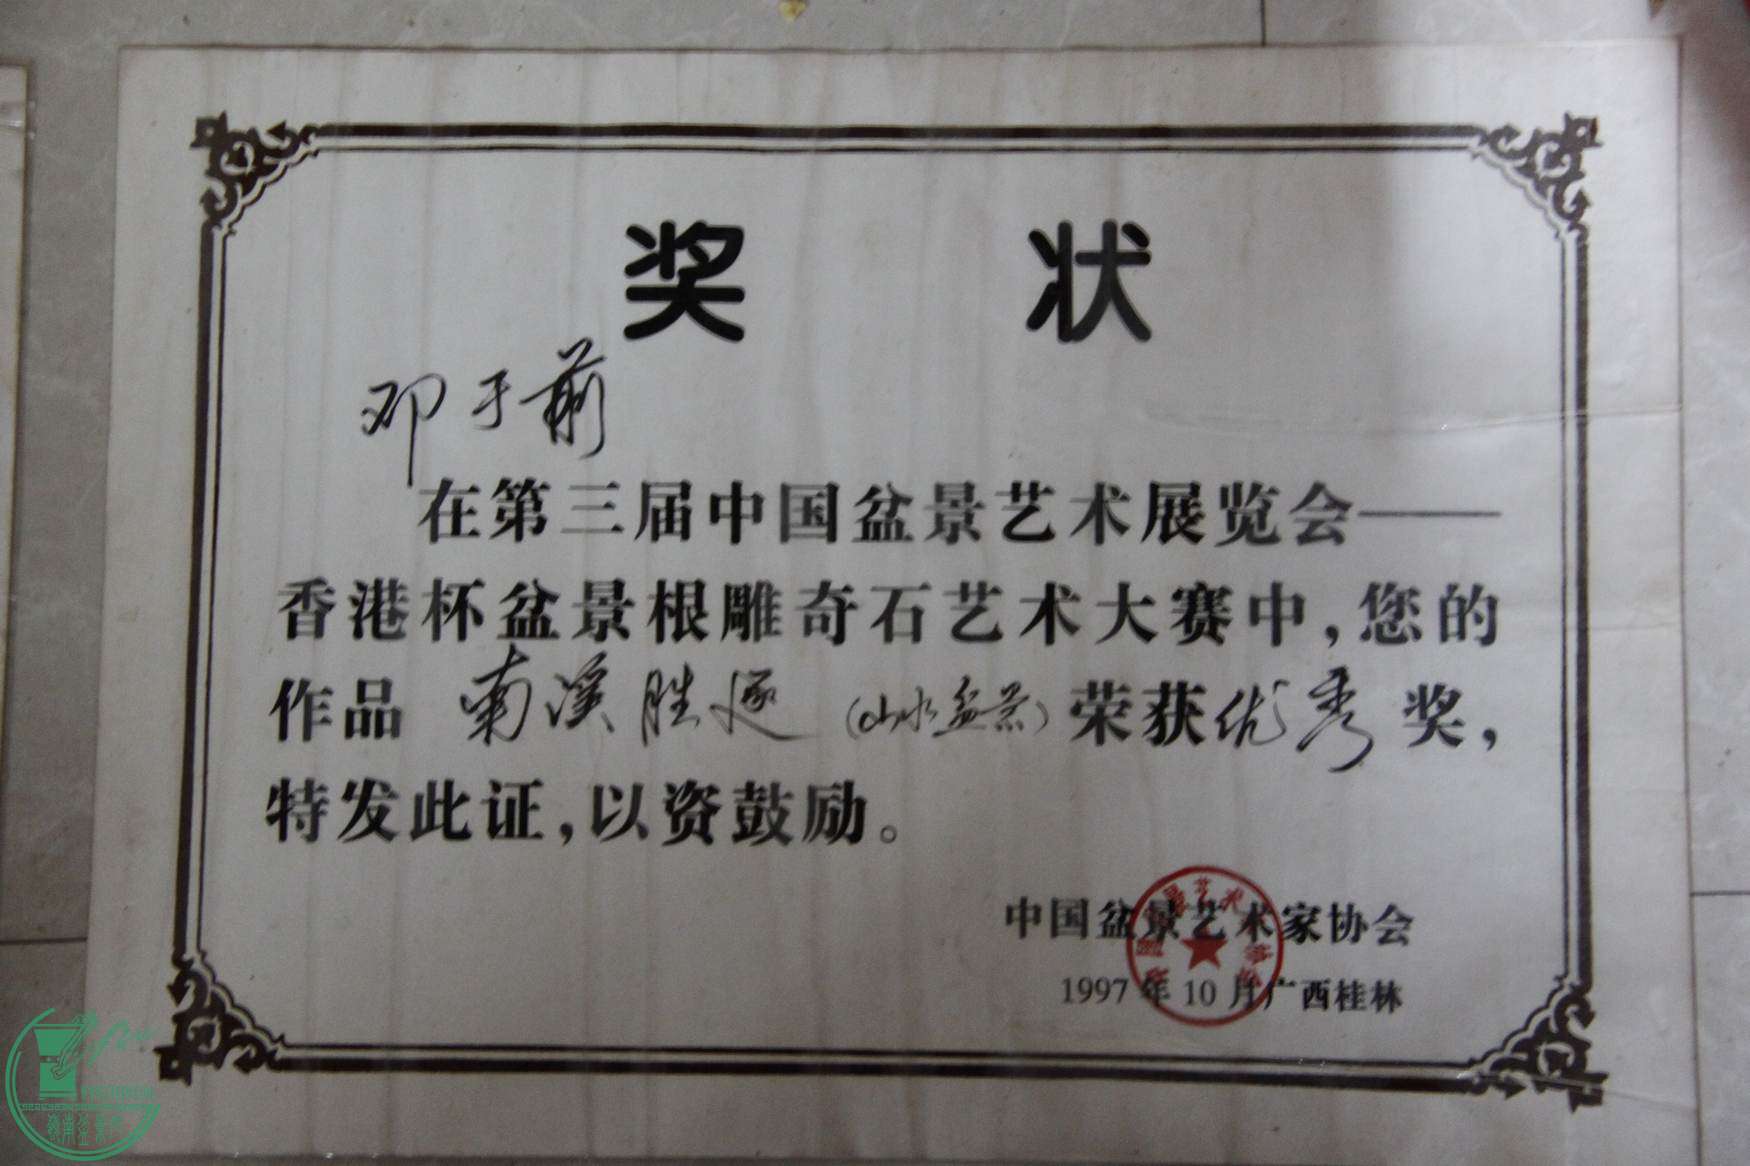 奖 状
邓于前
在第三届中国盆景艺术展览会——
香港杯盆景根雕奇石艺术大赛中,您的
作品 南溪胜 (山水盆景) 荣获优秀奖,
特发此证,以资鼓励。
中国盆景艺术家协会
1997年10月广西桂林